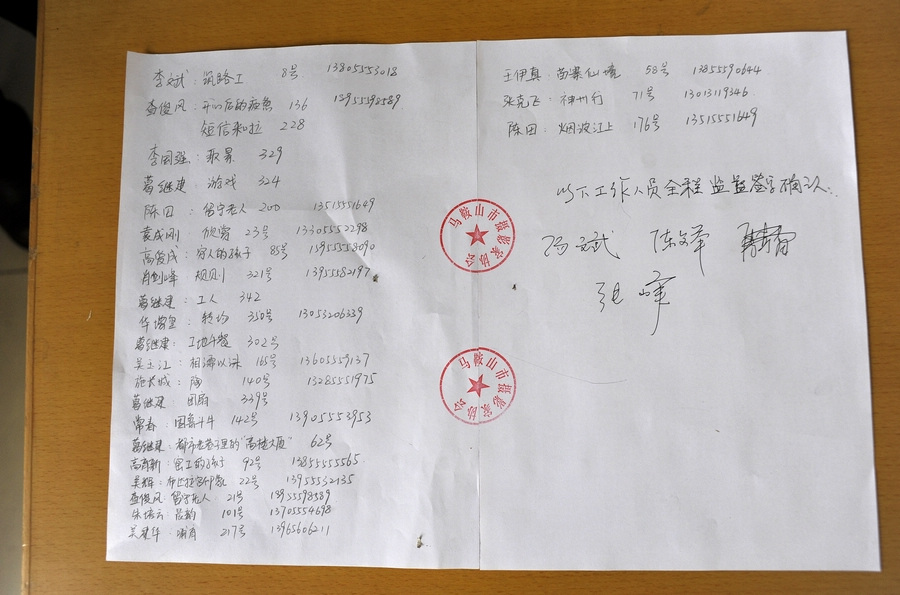 李文斌：筑路工 8号 13805553018
查俊风：开心后的疲惫 136
短信来啦 228
李国强：歌累 329
葛继建：游戏 324
陈田：留守老人 200 13515551649
袁成刚 欣客 23号 13305552298
高俊成：穷人的孩子 85号 1395558090
肖剑峰 规则 321号 13955582197
葛继建：工人 342
350号 13053206339
葛继建：工地午餐 302号
吴玉江：相濡以沫 165号 13605559137
施长城：陶 140号 13285551975
葛继建：团聚 339号
常春：围着斗牛 142号 13905553953
葛继建：都市 里的“高楼大厦” 62号
窑工的孩子 92号 13855555565
吴辉： 22号 13955532135
查俊风：留守老人 21号 13955598589
朱培云：吕韵 101号 13705554698
吴建华：哺育 217号 13965606211
王伊真：苗寨仙境 58号 13855590644
张克飞：神州行 71号 13013119346
陈田：烟波江上 176号 13515551649
以下工作人员全程监督签字确认：
冯文斌 陈文革
张峰
马鞍山市摄影家协会
马鞍山市摄影家协会